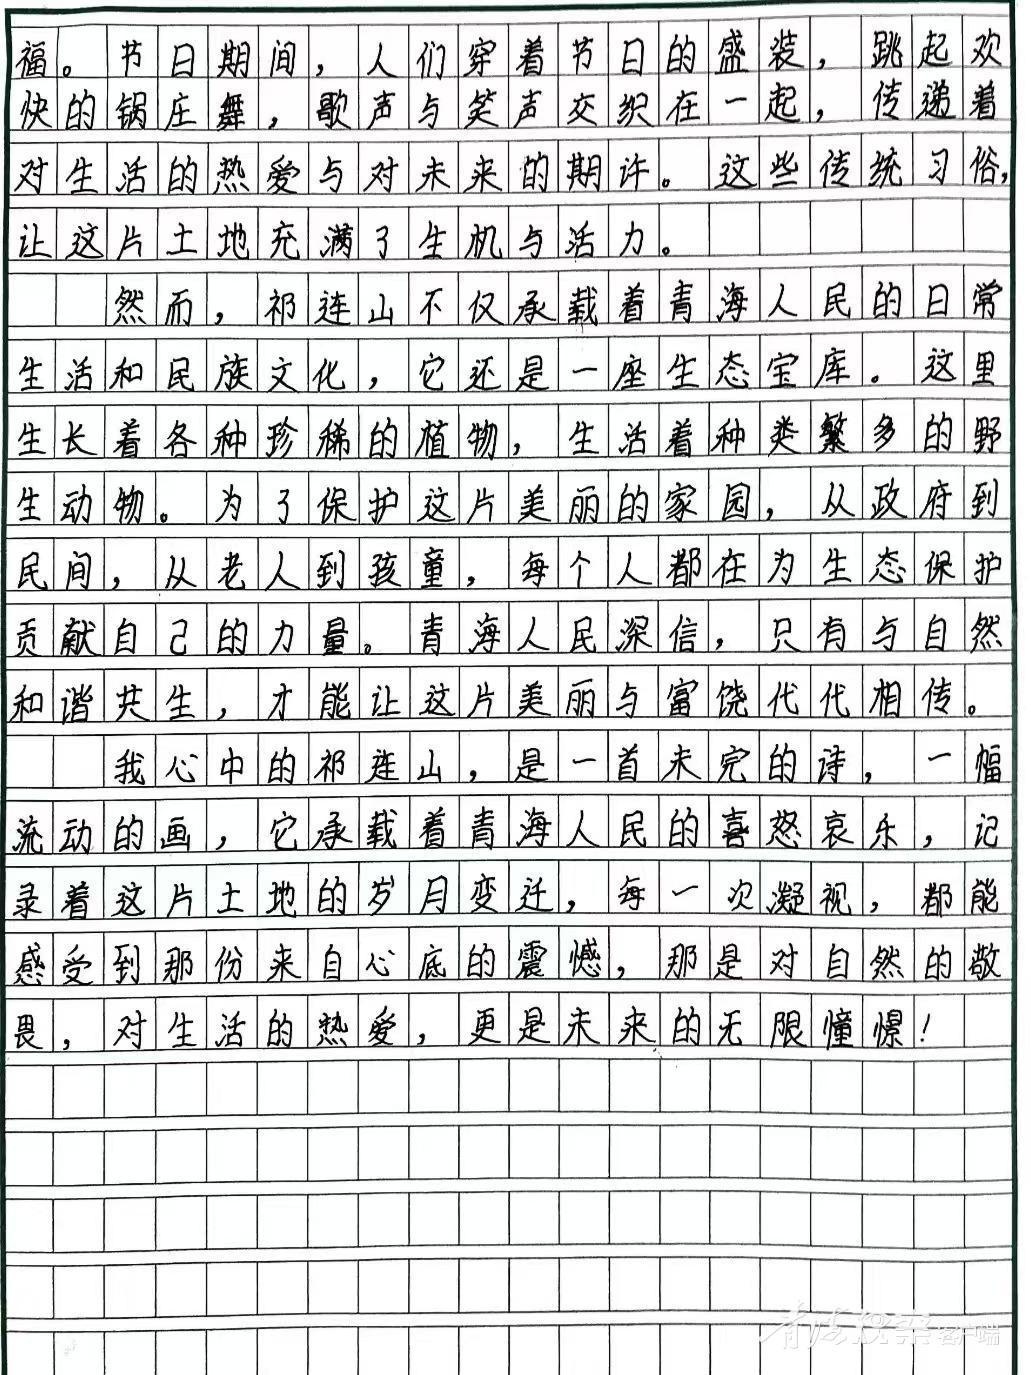 福。节日期间，人们穿着节日的盛装，跳起欢
快的锅庄舞，歌声与笑声交织在一起，传递着
对生活的热爱与对未来的期许。这些传统习俗，
让这片土地充满了生机与活力。
然而，祁连山不仅承载着青海人民的日常
生活和民族文化，它还是一座生态宝库。这里
生长着各种珍稀的植物，生活着种类繁多的野
生动物。为了保护这片美丽的家园，从政府到
民间，从老人到孩童，每个人都在为生态保护
贡献自己的力量。青海人民深信，只有与自然
和谐共生，才能让这片美丽与富饶代代相传。
我心中的祁连山，是一首未完的诗，一幅
流动的画，它承载着青海人民的喜怒哀乐，记
录着这片土地的岁月变迁，每一次凝视，都能
感受到那份来自心底的震憾，那是对自然的敬
畏，对生活的热爱，更是未来的无限憧憬！
客户端